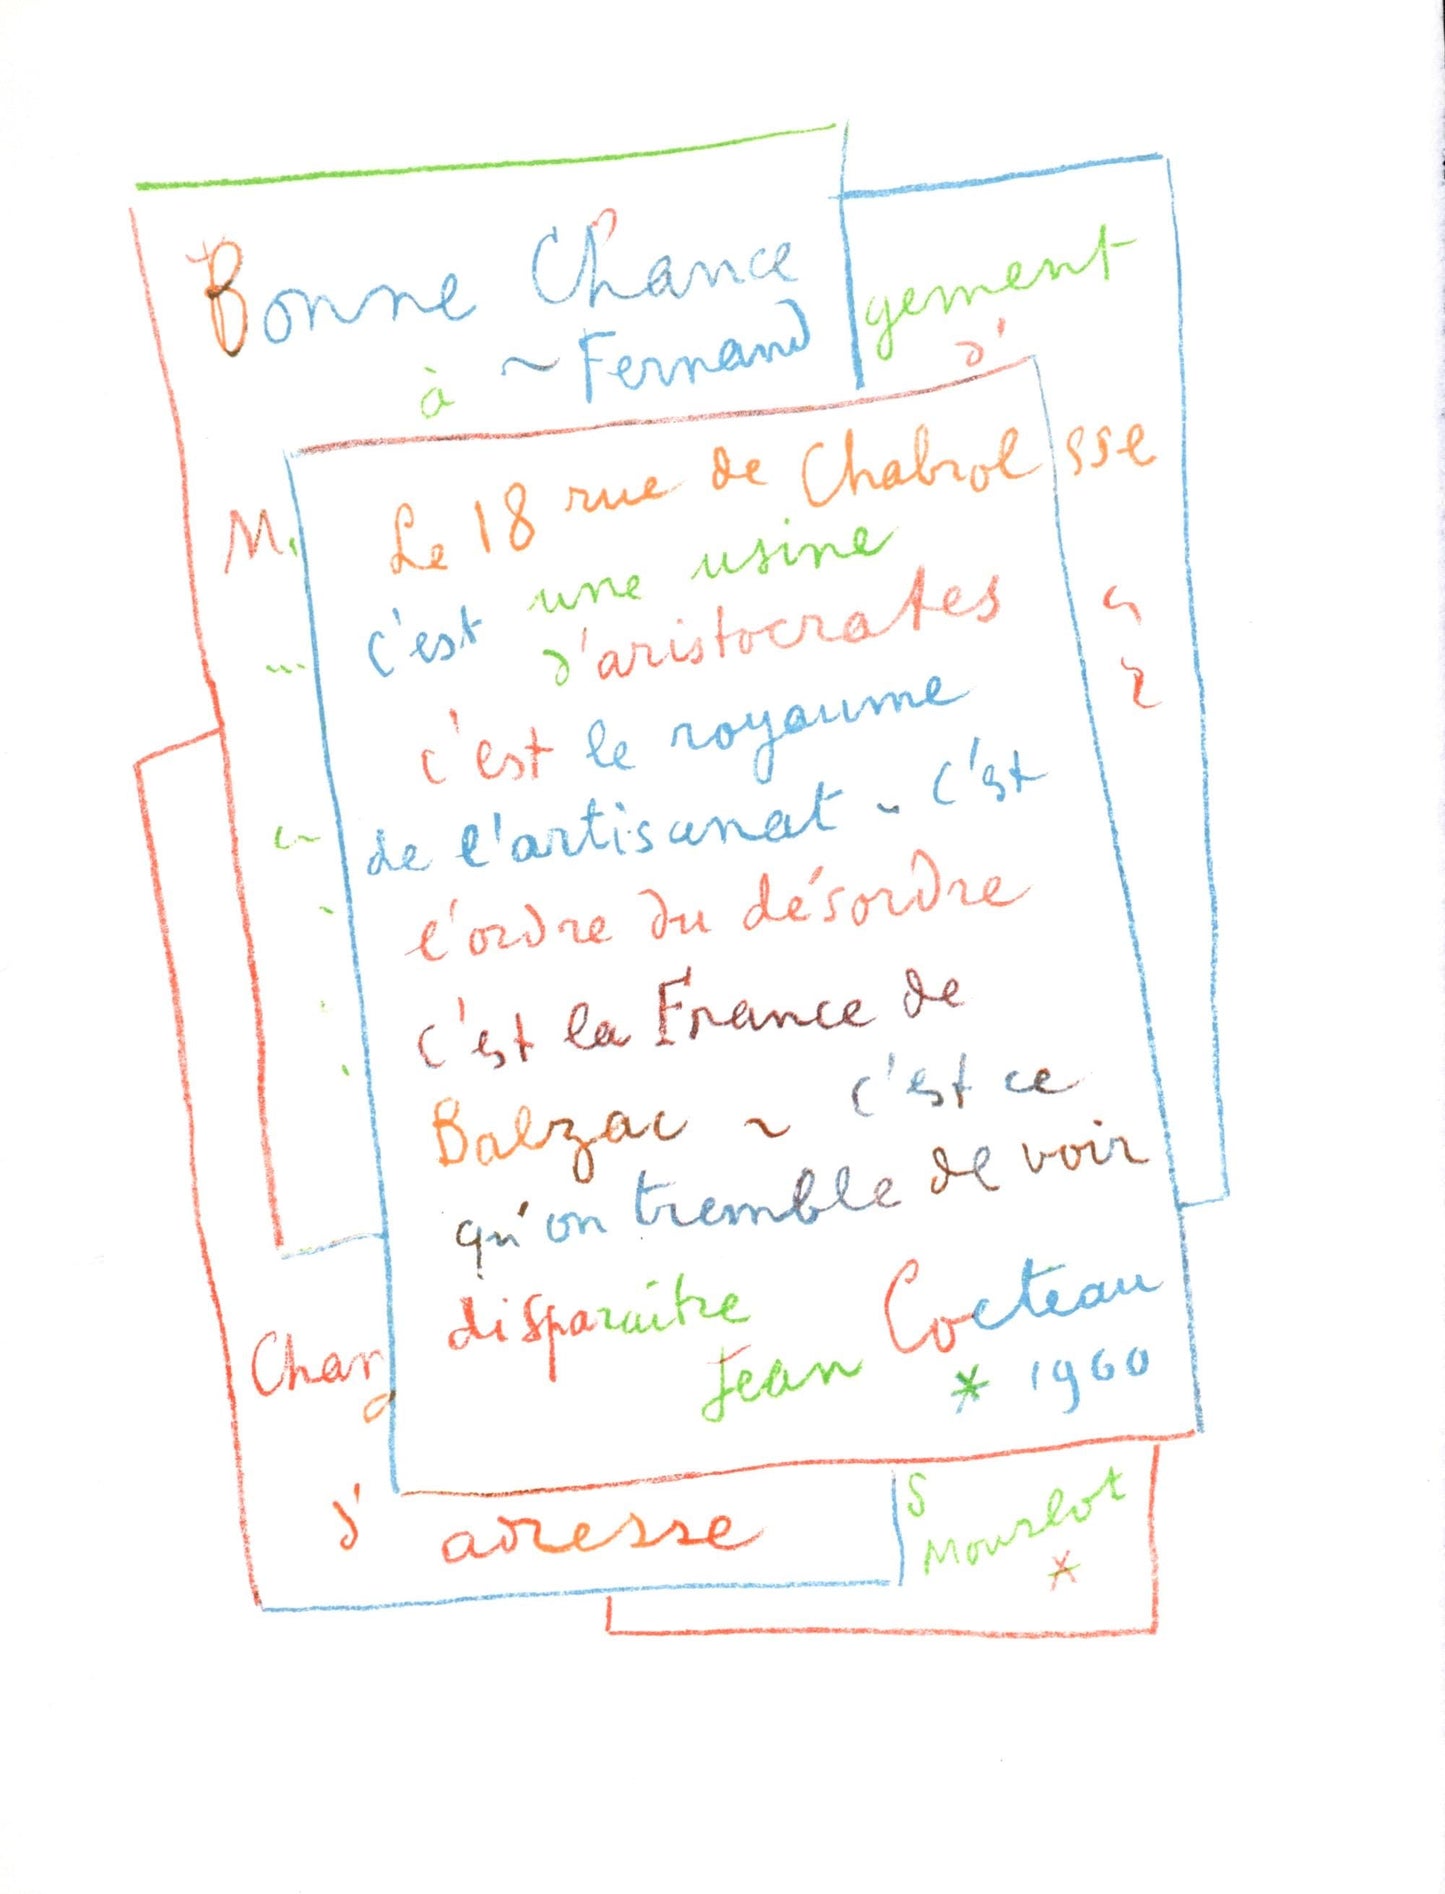 Bonne Chance
à ~ Fernand
gement
d'
sse
M.
Le 18 rue de Chabrol
c'est une usine
d'aristocrates
c'est le royaume
de l'artisanat ~ c'est
l'ordre du désordre
c'est la France de
Balzac ~ c'est ce
qu'on tremble de voir
disparaître
Jean Cocteau
* 1960
Chan
d'adresse
S
Mourlot
*